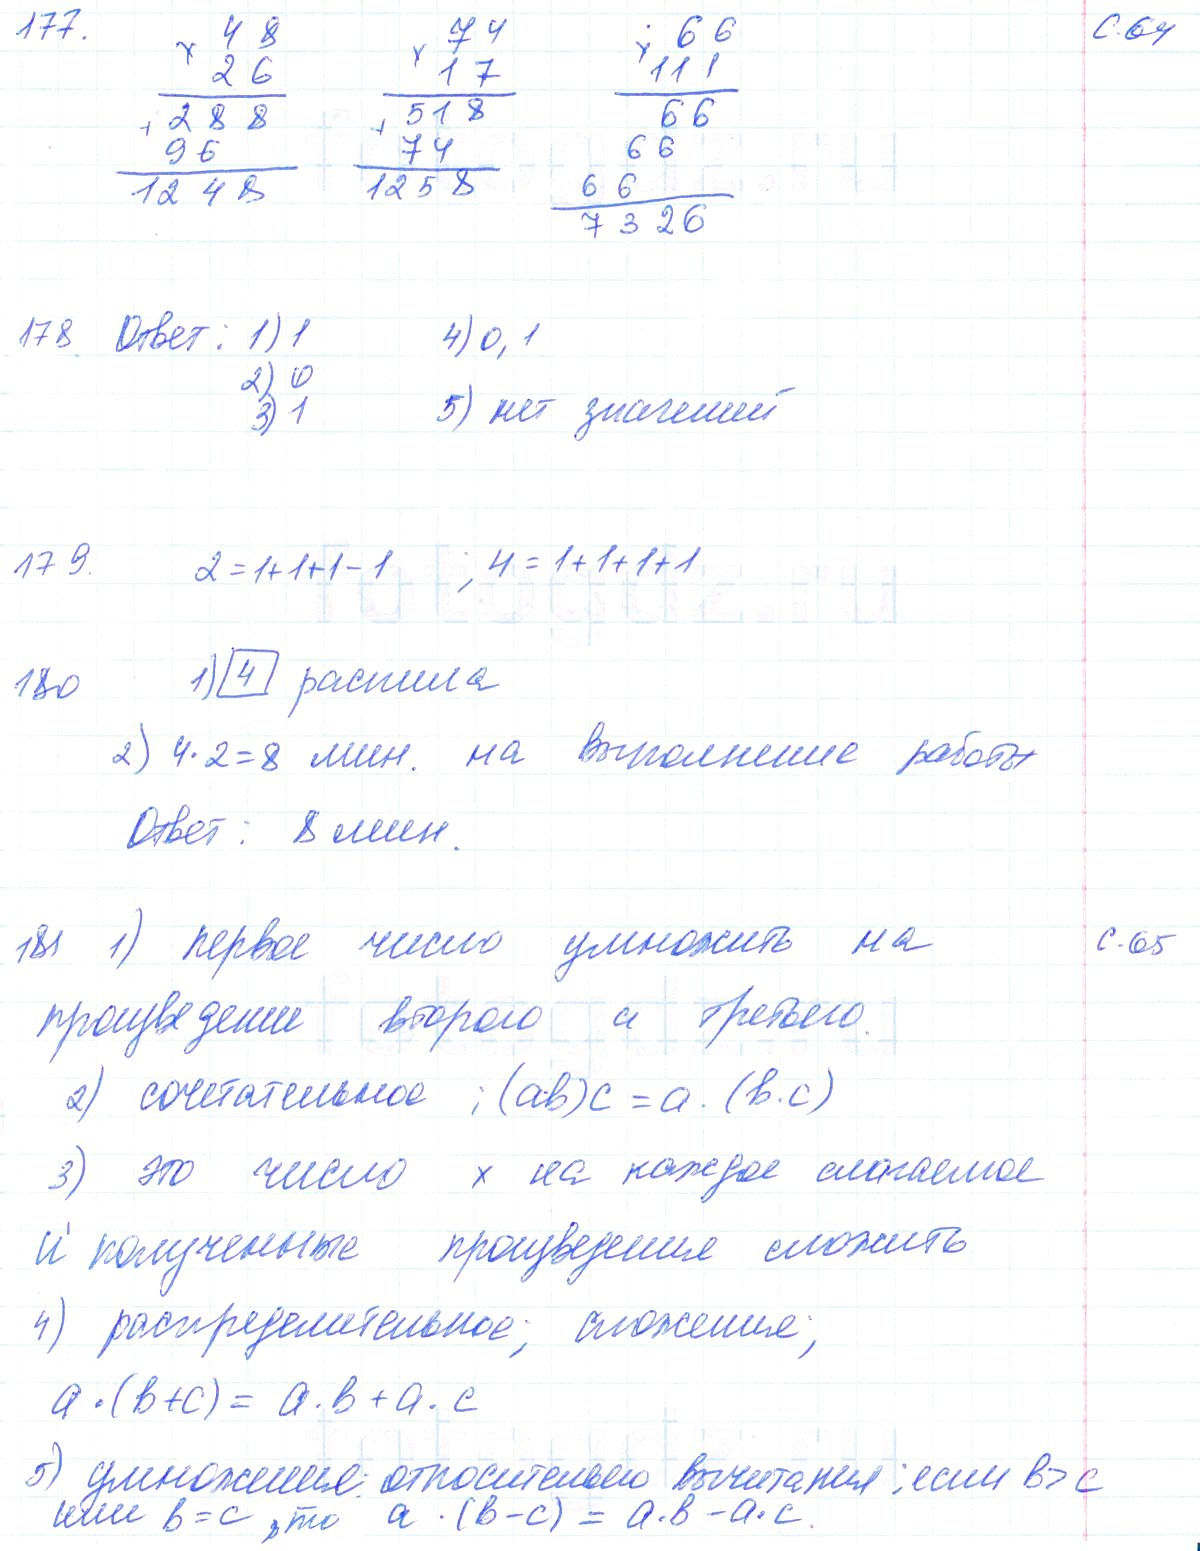 177. 48 74 66 с.64
× 26 × 17 × 111
+ 288 + 518 66
96 74 66
1248 1258 66
7326
178 Ответ: 1) 1 4) 0, 1
2) 0
3) 1 5) нет значений
179. 2=1+1+1-1 ; 4=1+1+1+1
180 1) 4 распила
2) 4·2=8 мин. на выполнение работы
Ответ: 8 мин.
181 1) первое число умножить на с.65
произведение второго и третьего.
2) сочетательное ; (ab)c = a·(b·c)
3) это число х на каждое слагаемое
и полученные произведения сложить
4) распределительное; сложения;
a·(b+c) = a·b + a·c
5) умножения: относительно вычитания; если b>c
или b=c, то a·(b-c) = a·b-a·c.
fotogdz.ru
fotogdz.ru
fotogdz.ru
fotogdz.ru